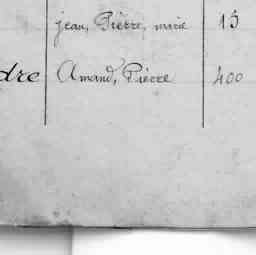 jean, Pierre, marie 15
dre Amand, Pierre 400